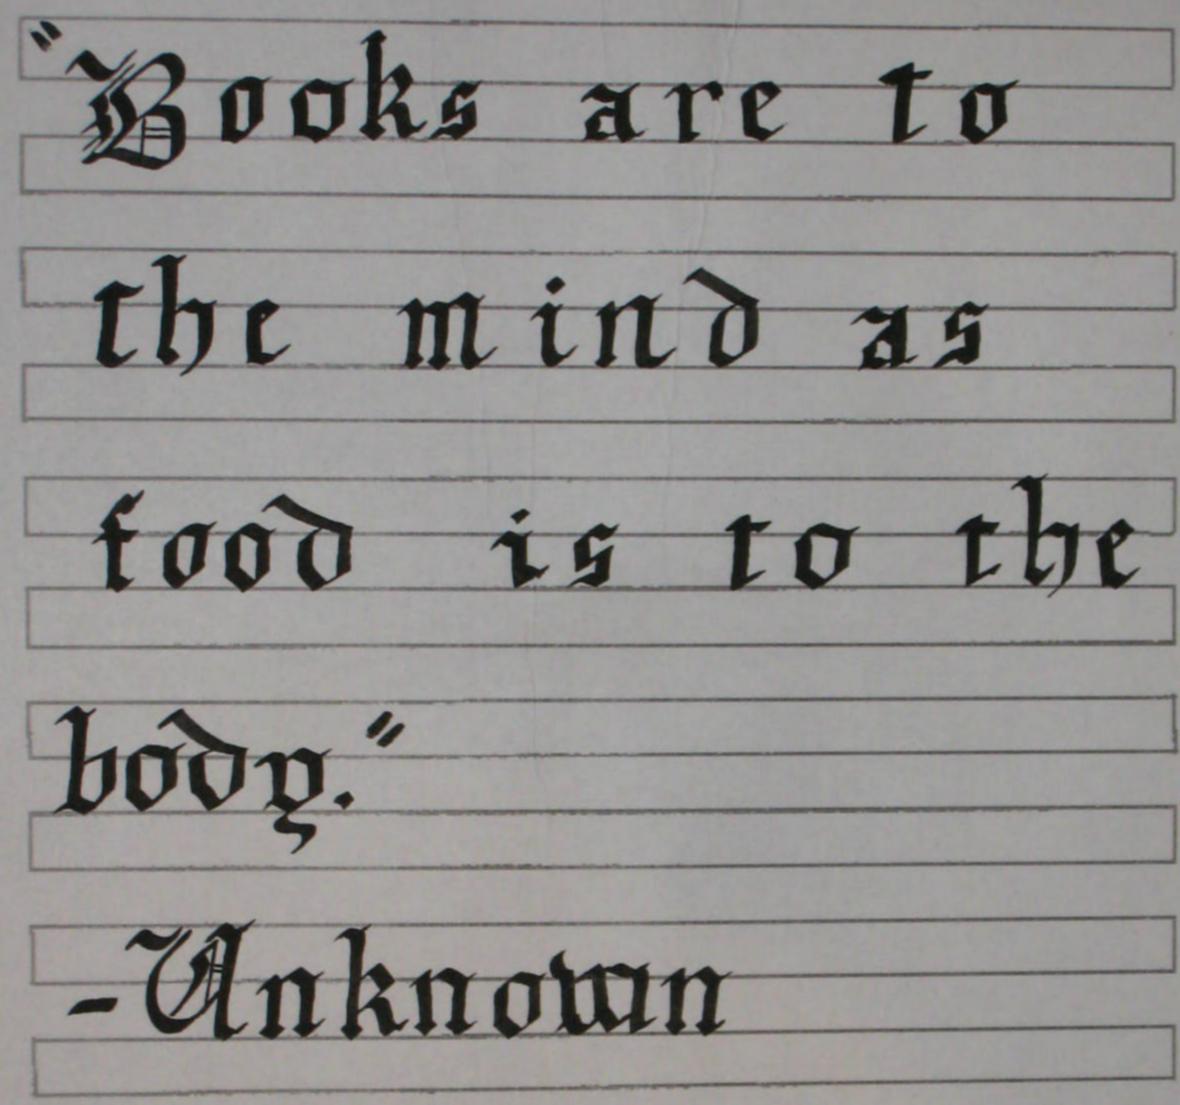 "Books are to
the mind as
food is to the
body."
-Unknown